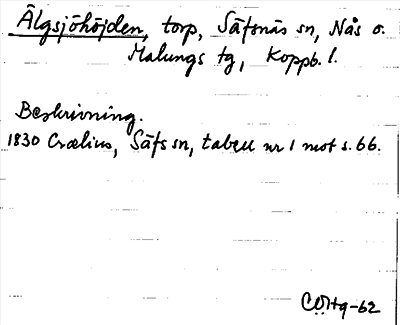 Älgsjöhöjden, torp, Säfsnäs sn, Nås o.
Malungs tg, Koppb. l.
Beskrivning.
1830 Crælius, Säfs sn, tabell nr 1 mot s. 66.